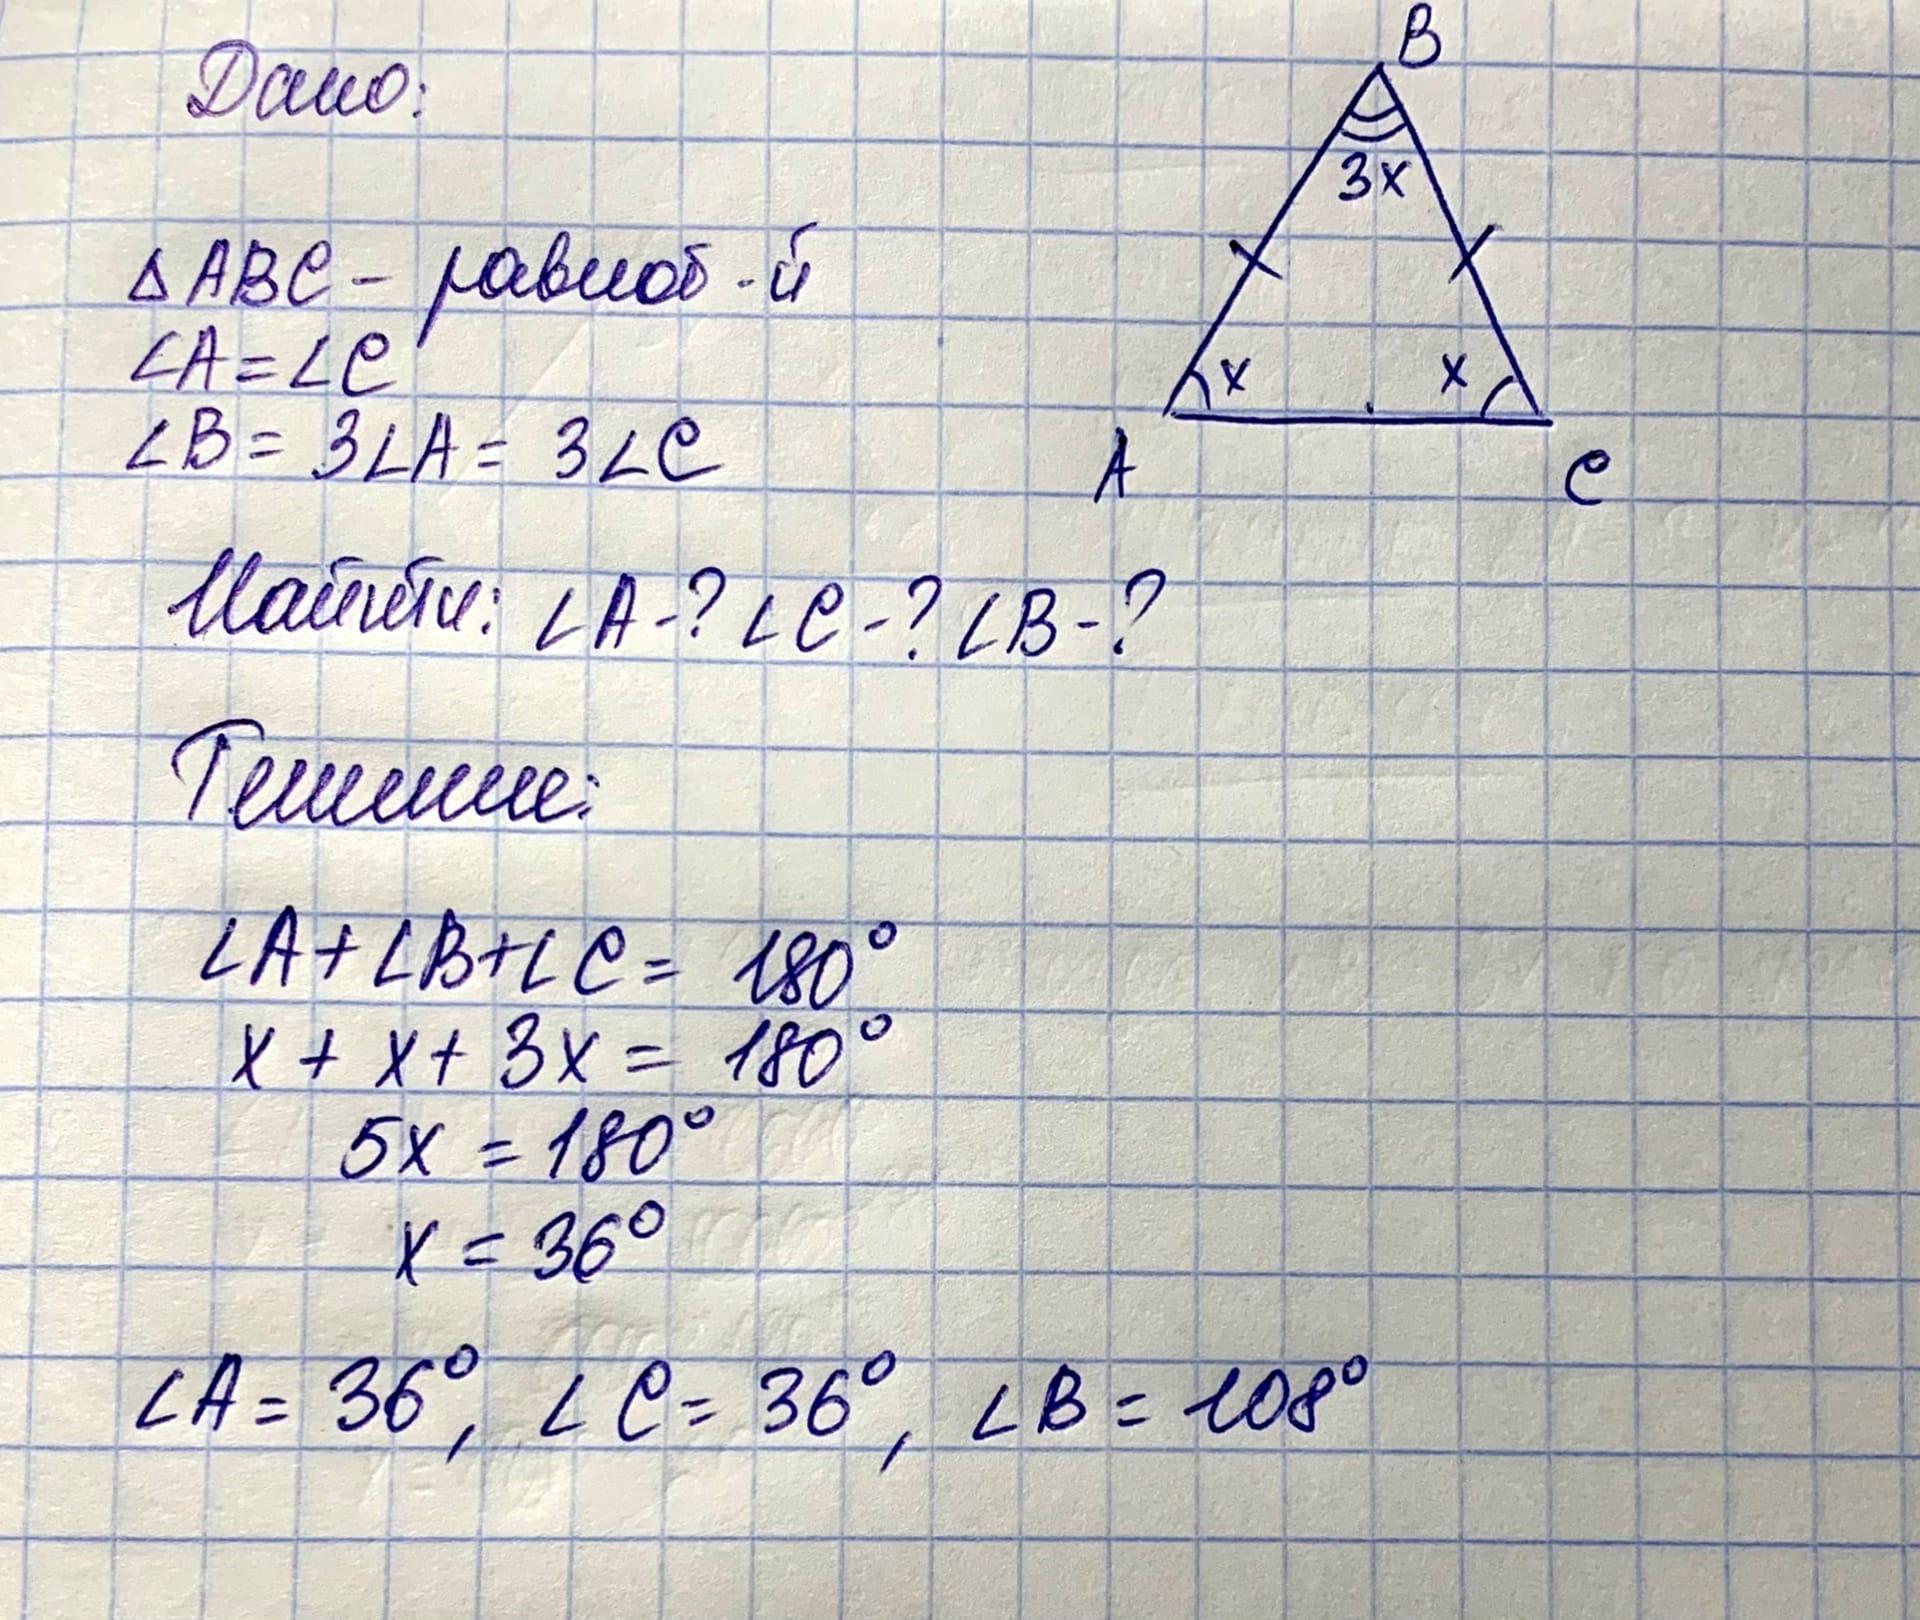 Дано:
B
3x
△ABC - равноб-й
∠A = ∠C
x x
∠B = 3∠A = 3∠C
A C
Найти: ∠A-? ∠C-? ∠B-?
Решение:
∠A + ∠B + ∠C = 180°
x + x + 3x = 180°
5x = 180°
x = 36°
∠A = 36°, ∠C = 36°, ∠B = 108°